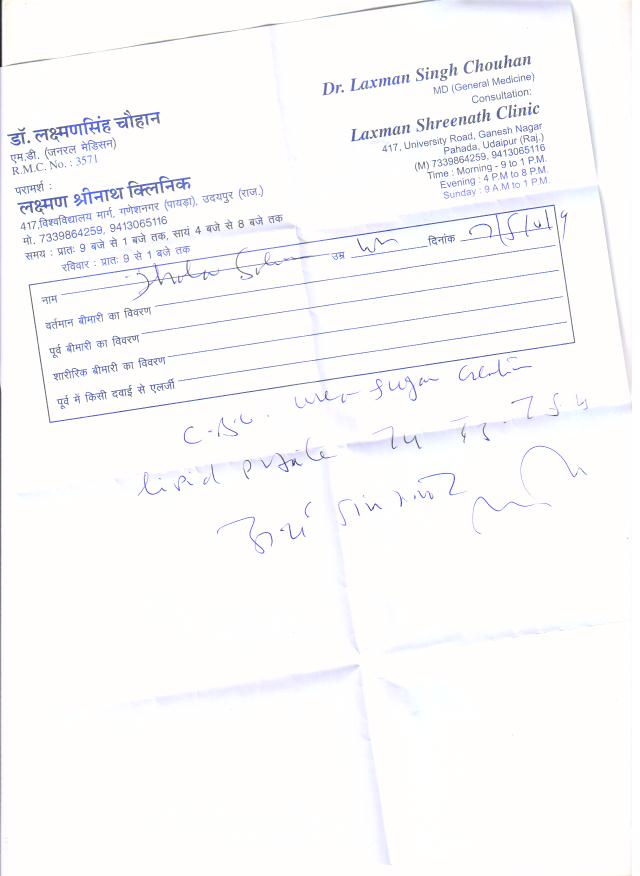 डॉ. लक्ष्मणसिंह चौहान
एम.डी. (जनरल मेडिसन)
R.M.C. No. : 3571
परामर्श :
लक्ष्मण श्रीनाथ क्लिनिक
417,विश्वविद्यालय मार्ग, गणेशनगर (पायड़ा), उदयपुर (राज.)
मो. 7339864259, 9413065116
समय : प्रातः 9 बजे से 1 बजे तक, सायं 4 बजे से 8 बजे तक
रविवार : प्रातः 9 से 1 बजे तक
Dr. Laxman Singh Chouhan
MD (General Medicine)
Consultation:
Laxman Shreenath Clinic
417, University Road, Ganesh Nagar
Pahada, Udaipur (Raj.)
(M) 7339864259, 9413065116
Time : Morning - 9 to 1 P.M.
Evening : 4 P.M to 8 P.M.
Sunday : 9 A.M to 1 P.M.
नाम उम्र दिनांक
वर्तमान बीमारी का विवरण
पूर्व बीमारी का विवरण
शारीरिक बीमारी का विवरण
पूर्व में किसी दवाई से एलर्जी
urea sugar
lipid T3